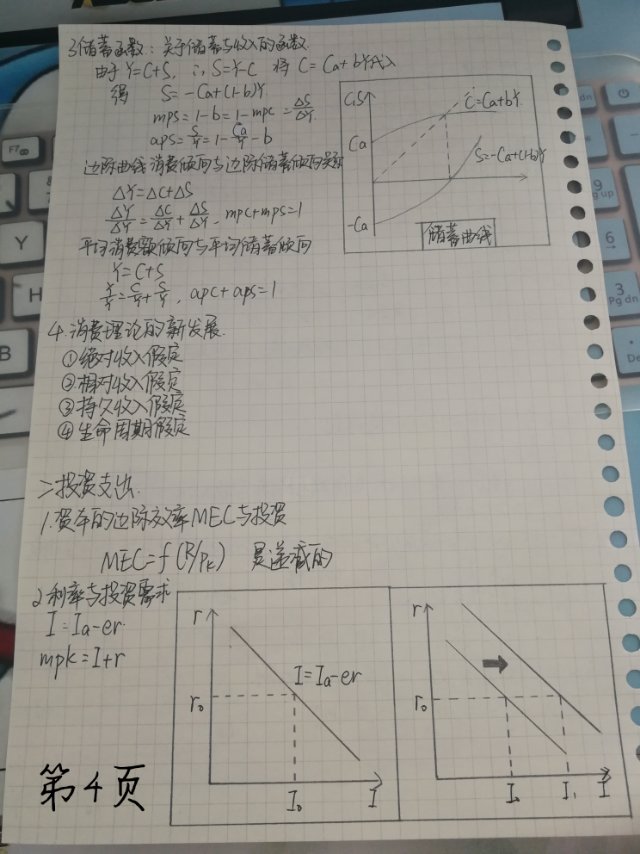 3.储蓄函数：关于储蓄与收入的函数.
由于Y=C+S, ∴S=Y-C 将 C=Ca+bY代入
得 S=-Ca+(1-b)Y
mps=1-b=1-mpc=ΔS/ΔY
aps=S/Y=1-Ca/Y-b
边际曲线消费倾向与边际储蓄倾向关系
ΔY=ΔC+ΔS
ΔY/ΔY=ΔC/ΔY+ΔS/ΔY, mpc+mps=1
平均消费额倾向与平均储蓄倾向
Y=C+S
Y/Y=C/Y+S/Y, apc+aps=1
C,S
C=Ca+bY
Ca
S=-Ca+(1-b)Y
-Ca
储蓄曲线
4.消费理论的新发展.
①绝对收入假定
②相对收入假定
③持久收入假定
④生命周期假定
二投资支出.
1.资本的边际效率MEC与投资
MEC=f(R/Pk) 是递减的
2.利率与投资需求
I=Ia-er.
mpk=I+r
r
I=Ia-er
r₀
I₀
I
r
r₀
I₀
I₁
I
第4页
F7
F8
Y
U
H
B
Del
9
PgUp
6
3
PgDn